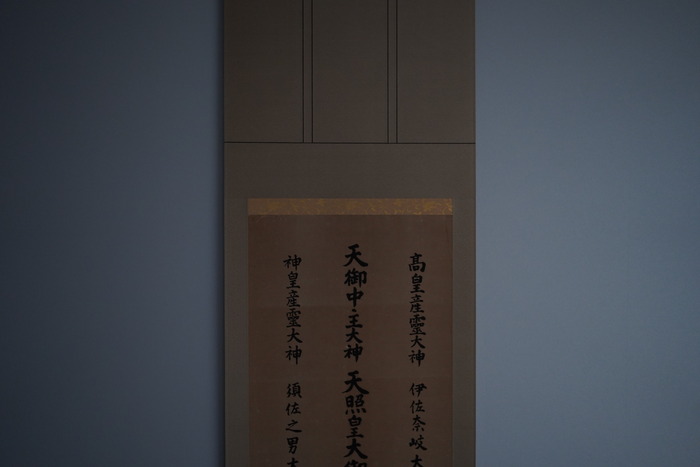 高皇産靈大神 伊佐奈岐大
天御中主大神 天照皇大御
神皇産靈大神 須佐之男大